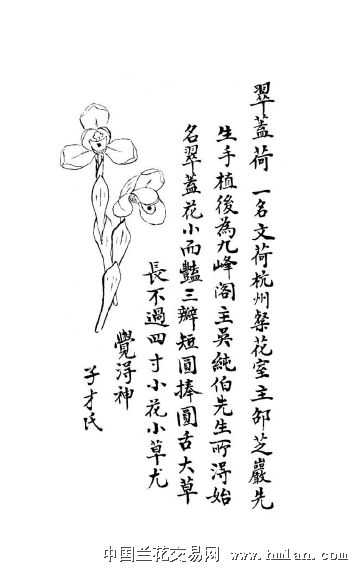 翠蓋荷 一名文荷杭州粲花室主邵芝巖先
生手植後為九峰閣主吳純伯先生所得始
名翠蓋花小而豔三瓣短圓捧圓舌大草
長不過四寸小花小草尤
覺得神
子才氏
中国兰花交易网 www.hmlan.com